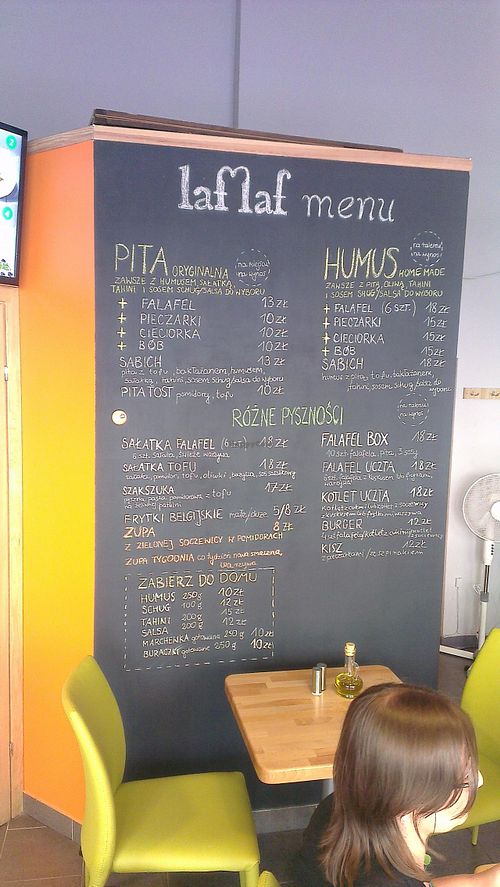 laflaf menu
PITA ORYGINALNA
na miejscu/
na wynos!
ZAWSZE Z HUMUSEM, SAŁATKĄ,
TAHINI I SOSEM SCHUG/SALSA DO WYBORU
+ FALAFEL 13 ZŁ
+ PIECZARKI 10 ZŁ
+ CIECIORKA 10 ZŁ
+ BÓB 10 ZŁ
SABICH 13 ZŁ
pita z tofu, bakłażanem, humusem,
sałatką, tahini, sosem schug/salsa do wyboru
PITA TOST pomidory, tofu 10 ZŁ
HUMUS HOME MADE
na talerzu/
na wynos!
ZAWSZE Z PITĄ, OLIWĄ, TAHINI
I SOSEM SHUG/SALSA DO WYBORU
+ FALAFEL (6 SZT.) 18 ZŁ
+ PIECZARKI 15 ZŁ
+ CIECIORKA 15 ZŁ
+ BÓB 15 ZŁ
SABICH 18 ZŁ
humus z pitą, tofu, bakłażanem,
tahini, sosem schug/salsa do
wyboru
RÓŻNE PYSZNOŚCI
na talerzu/
na wynos!
SAŁATKA FALAFEL (6 szt.) 18 ZŁ
6 szt. falafla, sałata, świeże warzywa
SAŁATKA TOFU 18 ZŁ
sałata, pomidor, tofu, oliwki, bazylia, sos
SZAKSZUKA 17 ZŁ
pyszna pasta pomidorowa z tofu
na ciepłej patelni
FRYTKI BELGIJSKIE małe/duże 5/8 ZŁ
ZUPA 8 ZŁ
Z ZIELONEJ SOCZEWICY W POMIDORACH
ZUPA TYGODNIA co tydzień nowa smaczna,
warzywna
FALAFEL BOX 18 ZŁ
10 szt. falafela, pita, 3 sosy
FALAFEL UCZTA 18 ZŁ
6 szt. falafla z kuskusem lub frytkami,
warzywa
KOTLET UCZTA 18 ZŁ
BURGER 12 ZŁ
KISZ 12 ZŁ
z pieczarkami / ze szpinakiem
ZABIERZ DO DOMU
HUMUS 250g 10 ZŁ
SCHUG 100g 12 ZŁ
TAHINI 200g 15 ZŁ
SALSA 200g 12 ZŁ
MARCHEWKA gotowana 250g 10 ZŁ
BURACZKI gotowane 250g 10 ZŁ
2
4